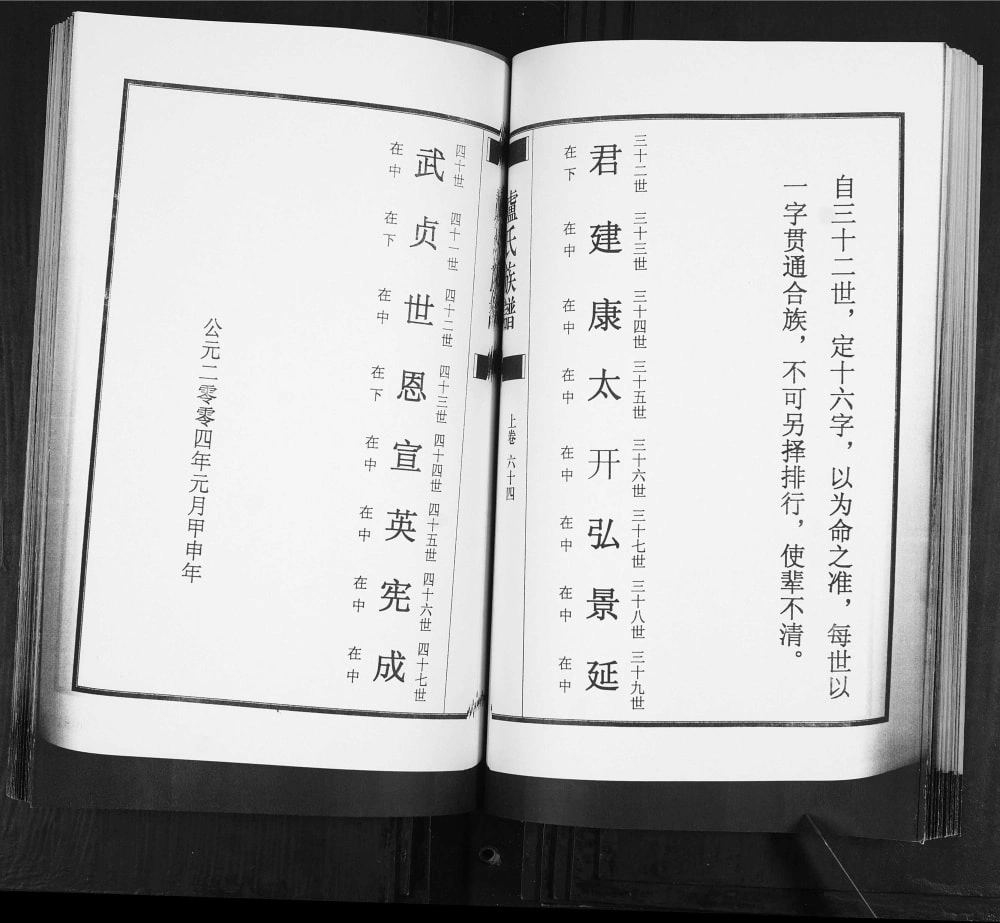 自三十二世，定十六字，以为命之准，每世以
一字贯通合族，不可另择排行，使辈不清。
三十二世 三十三世 三十四世 三十五世 三十六世 三十七世 三十八世 三十九世
君 建 康 太 开 弘 景 延
在下 在中 在中 在中 在中 在中 在中 在中
盧氏族譜
上卷 六十四
四十世 四十一世 四十二世 四十三世 四十四世 四十五世 四十六世 四十七世
武 贞 世 恩 宣 英 宪 成
在中 在下 在中 在下 在中 在中 在中 在中
公元二零零四年元月甲申年